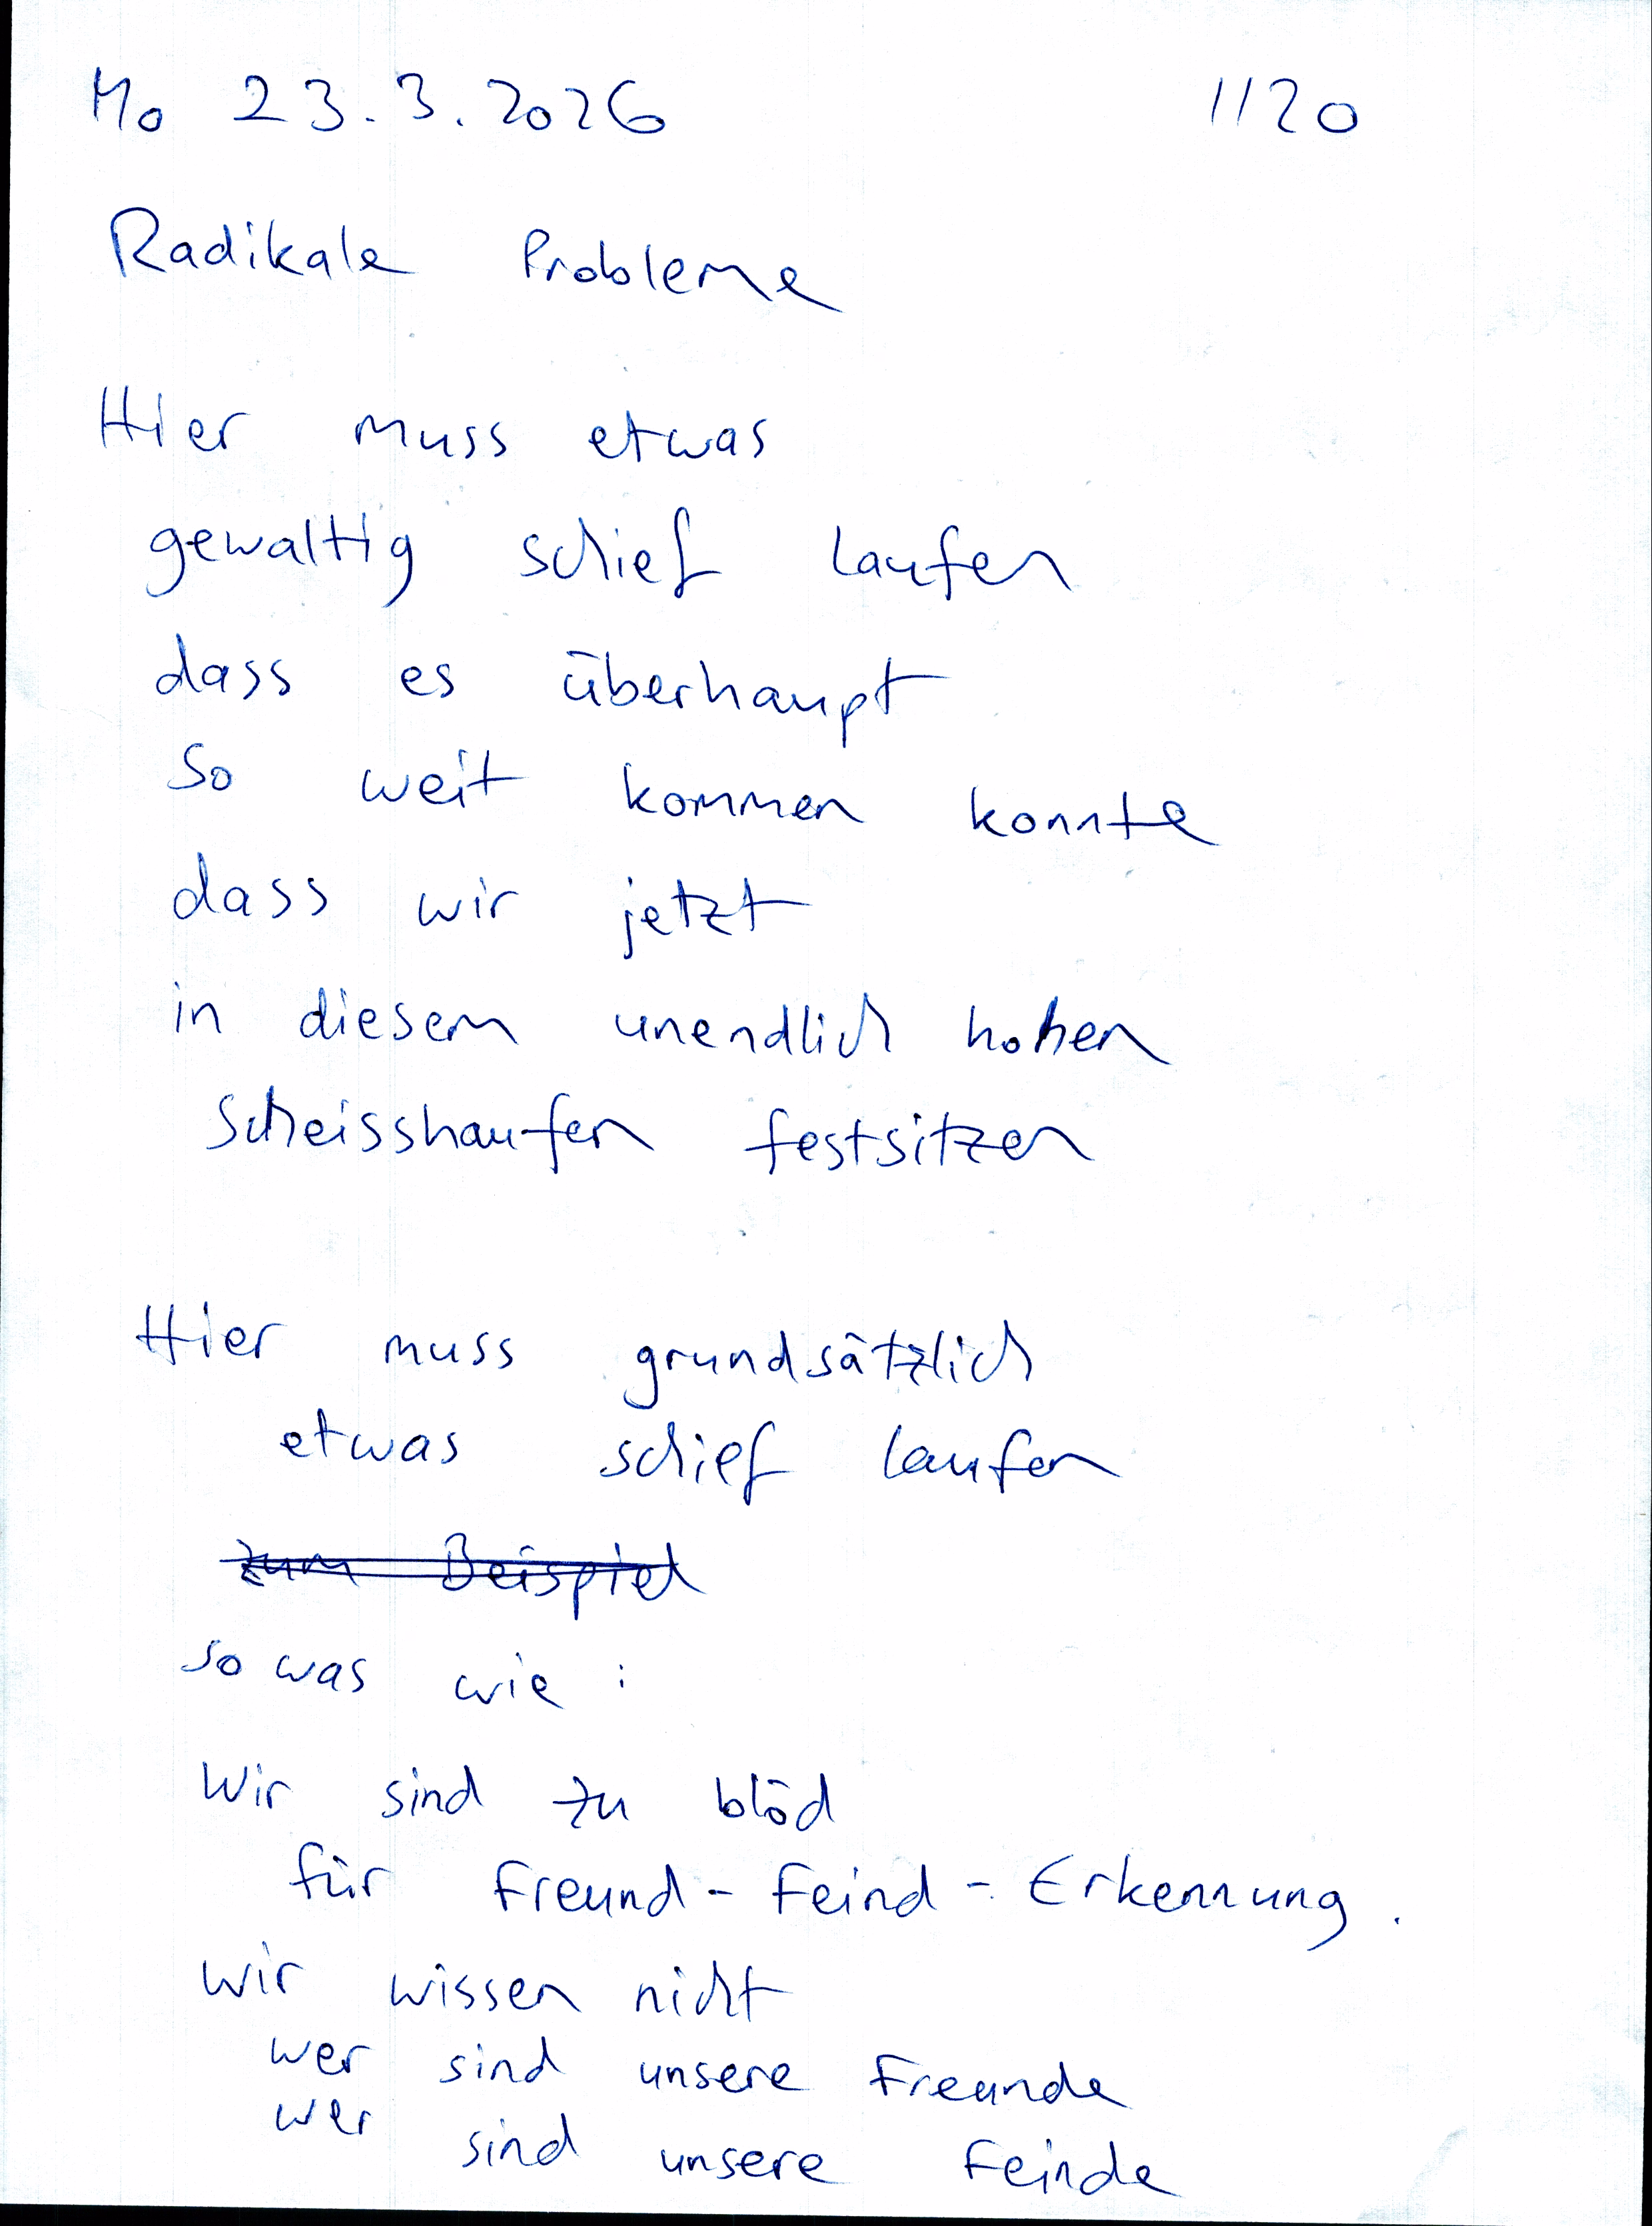 Mo 23.3.2026 1120
Radikale Probleme
Hier muss etwas
gewaltig schief laufen
dass es überhaupt
so weit kommen konnte
dass wir jetzt
in diesem unendlich hohen
Scheisshaufen festsitzen
Hier muss grundsätzlich
etwas schief laufen
zum Beispiel
so was wie :
Wir sind zu blöd
für Freund-Feind-Erkennung.
wir wissen nicht
wer sind unsere Freunde
wer sind unsere Feinde